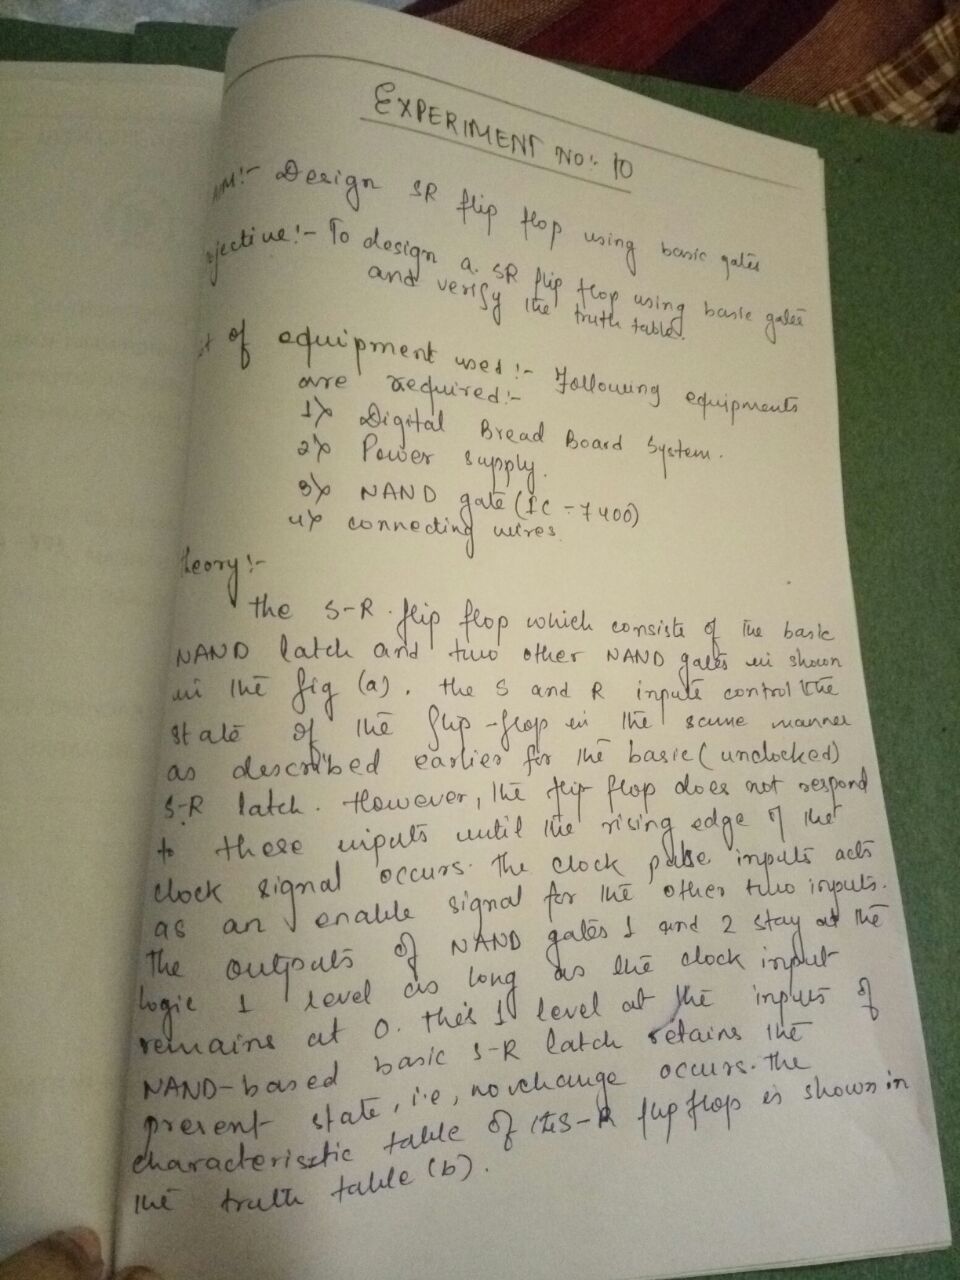 EXPERIMENT NO:- 10
AIM:- Design SR flip flop using basic gates
bjective:- To design a. SR flip flop using basic gates
and verify the truth table.
st of equipment used:- Following equipments
are required:-
1> Digital Bread Board System.
2> Power supply.
3> NAND gate (IC-7400)
4> connecting wires.
Theory:-
the S-R flip flop which consists of the basic
NAND latch and two other NAND gates in shown
in the fig (a). the S and R inputs control the
state of the flip-flop in the same manner
as described earlier for the basic (unclocked)
S-R latch. However, the flip flop does not respond
to these inputs until the rising edge of the
clock signal occurs. the clock pulse inputs acts
as an enable signal for the other two inputs.
the outputs of NAND gates 1 and 2 stay at the
logic 1 level as long as the clock input
remains at 0. this 1 level at the inputs of
NAND-based basic S-R latch retains the
present state, i.e, no change occurs. the
characterisztic table of the S-R flip flop is shown in
the truth table (b).